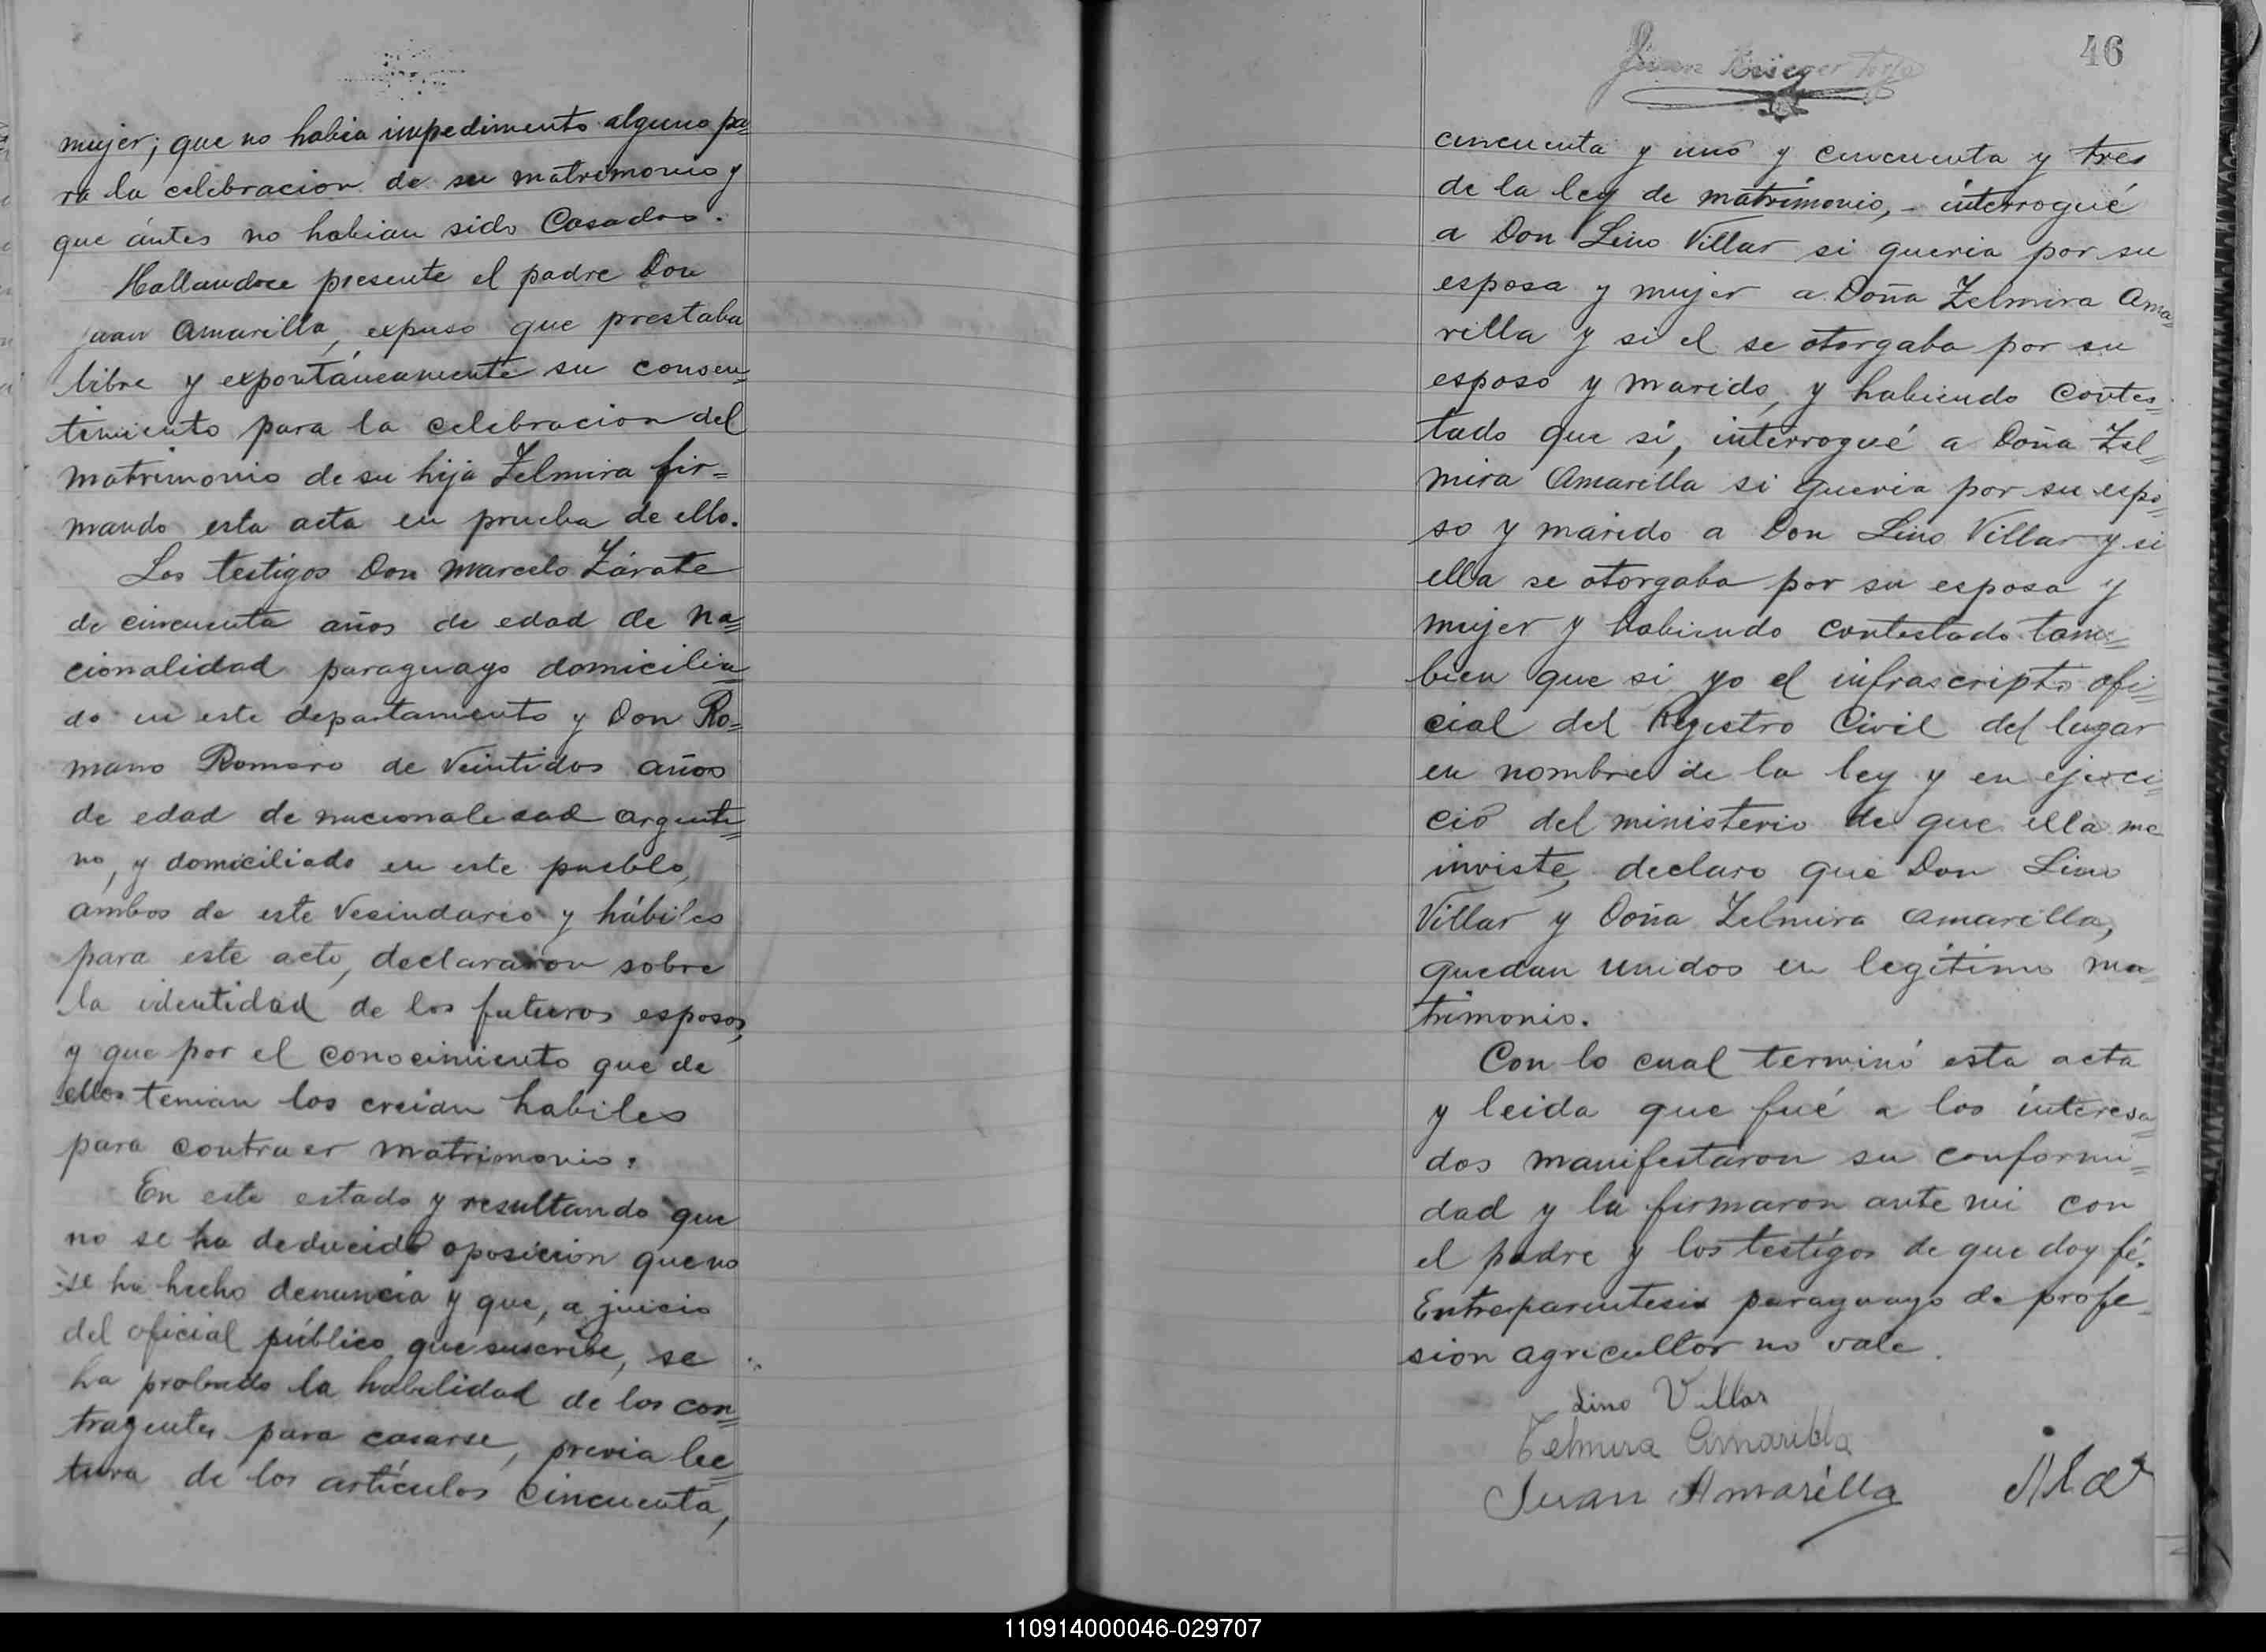 mujer; que no habia impedimento alguno pa=
ra la celebracion de su matrimonio y
que ántes no habian sido Casados.
Hallandoce presente el padre Don
Juan Amarilla, expuso que prestaba
libre y expontáneamente su consen=
timiento para la celebracion del
matrimonio de su hija Zelmira fir=
mando esta acta en prueba de ello.
Los testigos Don Marcelo Zárate
de cincuenta años de edad de na=
cionalidad paraguayo domicilia=
do en este departamento y Don Ro=
mano Romero de Veintidos años
de edad de nacionalidad argenti=
no, y domiciliado en este pueblo,
ambos de este Vecindario y hábiles
para este acto, declararon sobre
la identidad de los futuros esposos,
y que por el conocimiento que de
ellos tenian los creian habiles
para contraer matrimonio.
En este estado y resultando que
no se ha deducido oposicion que no
se ha hecho denuncia y que, a juicio
del oficial público que suscribe, se
ha probado la habilidad de los con=
trayentes para casarse, previa lec=
tura de los artículos cincuenta,
46
Juan Krieger
cincuenta y uno y cincuenta y tres
de la ley de matrimonio, - interrogué
a Don Lino Villar si queria por su
esposa y mujer a Doña Zelmira Ama=
rilla y si el se otorgaba por su
esposo y marido, y habiendo contes=
tado que sí, interrogué a Doña Zel=
mira Amarilla si queria por su espo=
so y marido a Don Lino Villar y si
ella se otorgaba por su esposa y
mujer y habiendo contestado tam=
bien que si yo el infrascripto ofi=
cial del Registro Civil del lugar
en nombre de la ley y en ejerci=
cio del ministerio de que ella me
inviste, declaro que Don Lino
Villar y Doña Zelmira Amarilla,
quedan unidos en legítimo ma=
trimonio.
Con lo cual terminó esta acta
y leida que fué a los interesa=
dos manifestaron su conformi=
dad y la firmaron ante mi con
el padre y los testigos de que doy fé.
Entreparentesis paraguayo de profe=
sion agricultor no vale.
Lino Villar
Zelmira Amarilla
Juan Amarilla
110914000046-029707